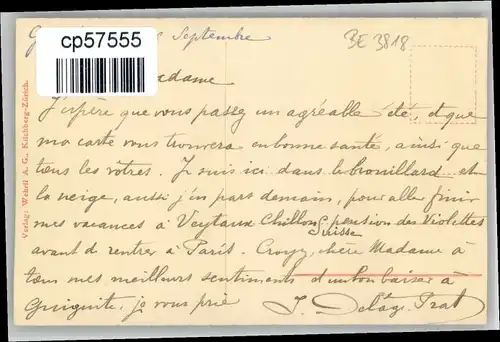 Septembre
BE 3818
cp57555
Madame
J'espère que vous passez un agréable été, et que
ma carte vous trouvera en bonne santé, ainsi que
tous les vôtres. Je suis ici dans le brouillard et
la neige, aussi j'en pars demain, pour aller finir
mes vacances à Veytaux Chillon pension des Violettes
Suisse
avant d rentrer à Paris. Croyez, chère Madame à
tous mes meilleurs sentiments d'un bon baiser à
Guiguite, je vous prie J. Delage Prat
Verlag: Wehrli A. G., Kilchberg-Zürich.